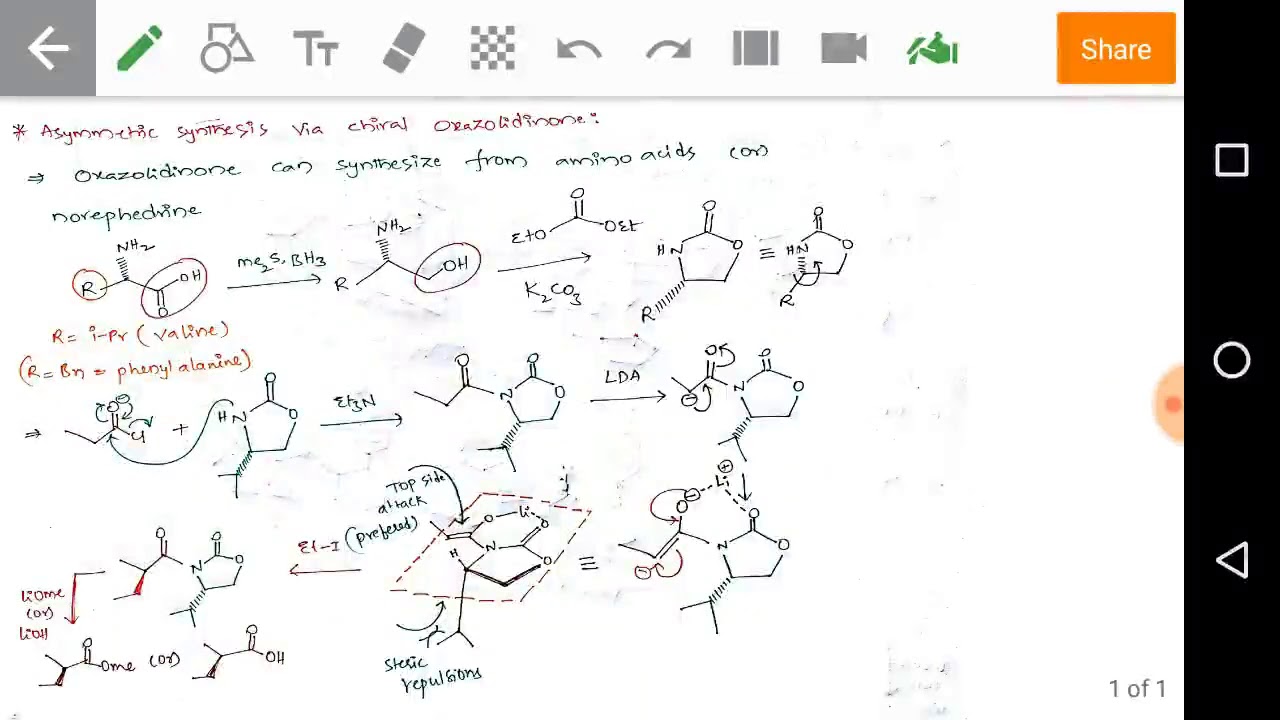 Share
* Asymmetric synthesis via chiral Oxazolidinone:
⇒ Oxazolidinone can synthesize from amino acids (or)
norephedrine
NH2 R OH O
me2S, BH3
NH2 R OH
O EtO OEt
K2CO3
O HN O R
≡
O HN O R
R = i-Pr (valine)
(R = Bn = phenyl alanine)
⇒ O⊖ Cl + O HN O
Et3N
O O N O
LDA
O O N O ⊖
Top side
attack
(prefered)
O Li O N O H
≡
⊕ Li ⊖ O O N O ⊖
steric
repulsions
Et-I
O O N O
LiOMe
(or)
LiOH
O OMe (or) O OH
1 of 1